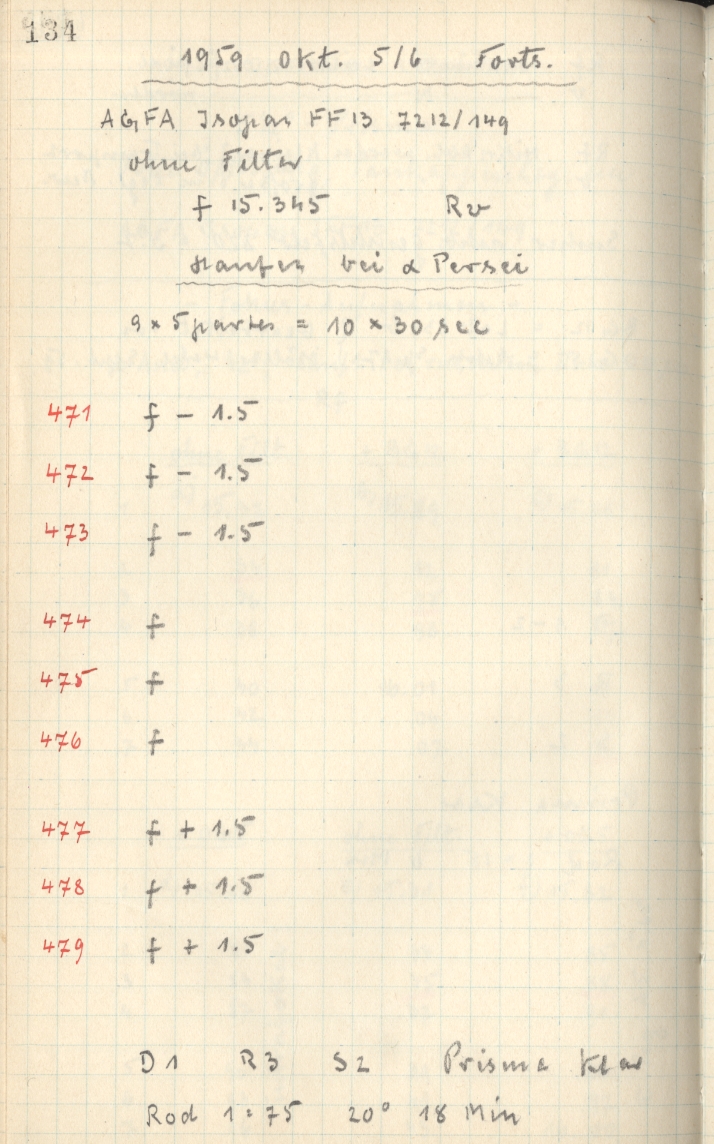 134
1959 Okt. 5/6 Forts.
AGFA Isopan FF 13 7212/149
ohne Filter
f 15.345 Rv
Haufen bei α Persei
9 × 5 partes = 10 × 30 sec
471 f − 1.5
472 f − 1.5
473 f − 1.5
474 f
475 f
476 f
477 f + 1.5
478 f + 1.5
479 f + 1.5
D1 R3 S2 Prisma klar
Rod 1:75 20° 18 Min